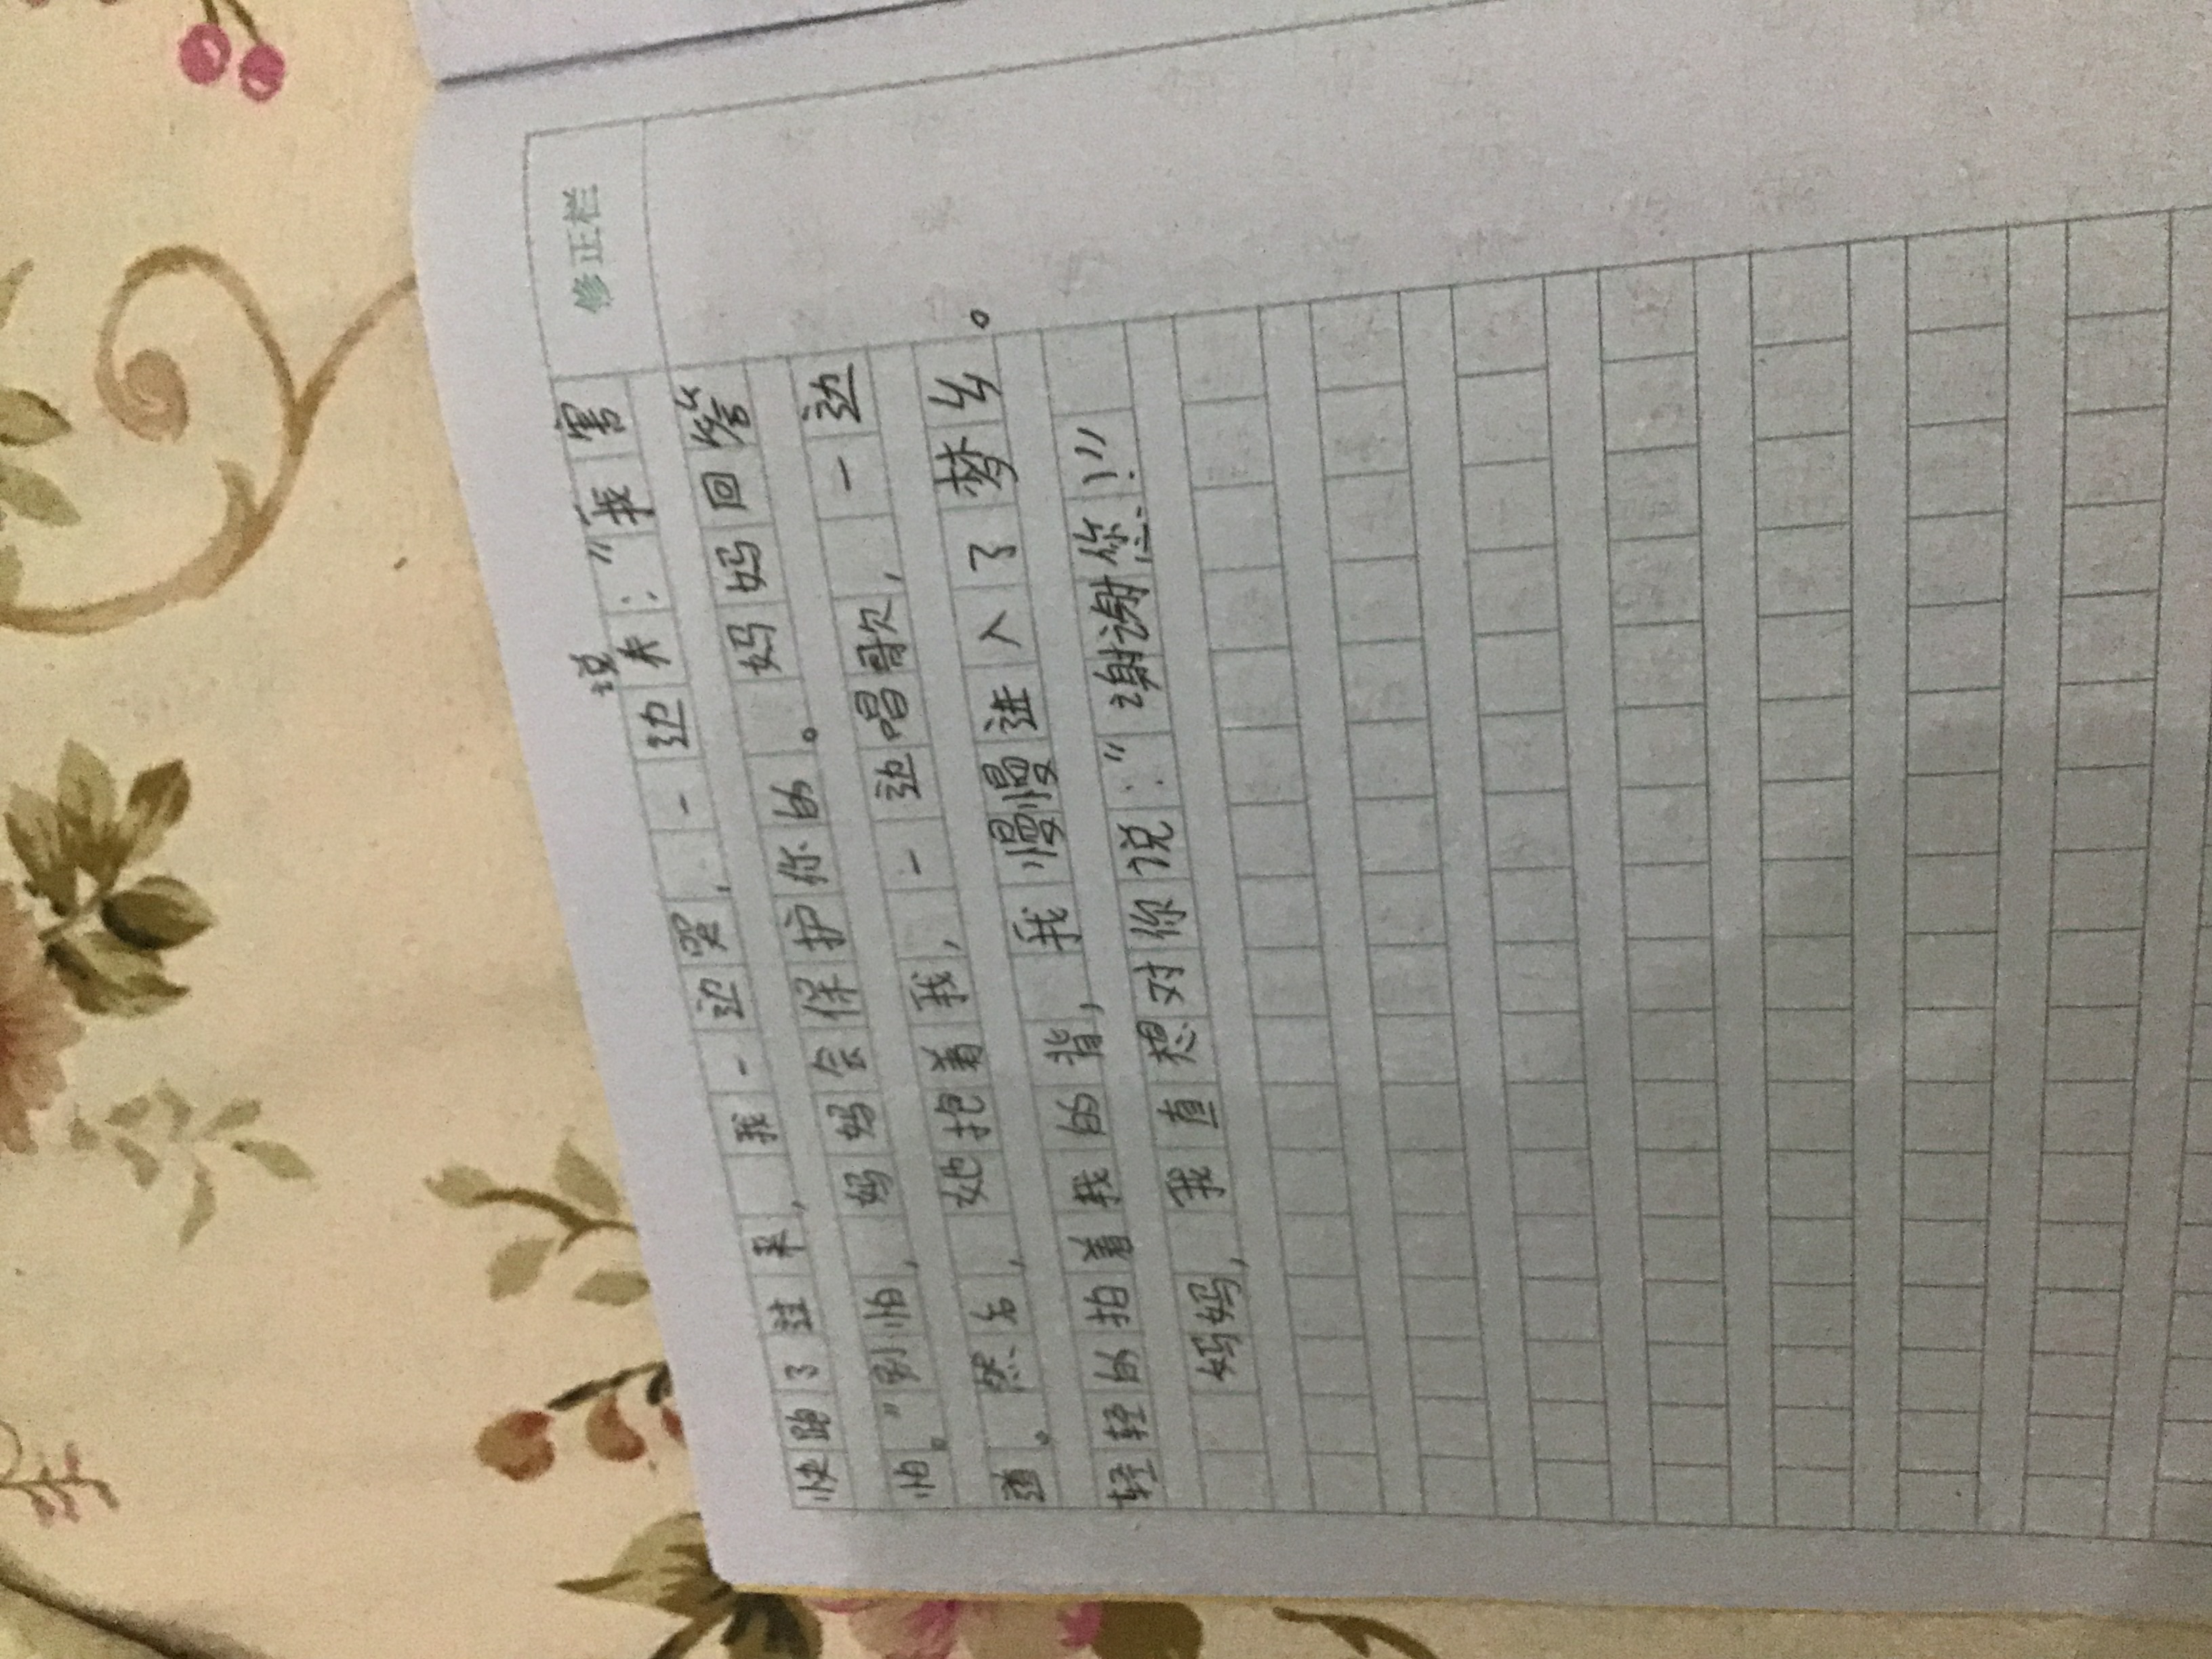 修正栏
快跑了过来，我一边哭，一边说来：“我害
怕。”别怕，妈妈会保护你的。妈妈回答
道。然后，她抱着我，一边唱歌，一边
轻轻的拍着我的背，我慢慢进入了梦乡。
妈妈，我直想对你说：“谢谢您！”